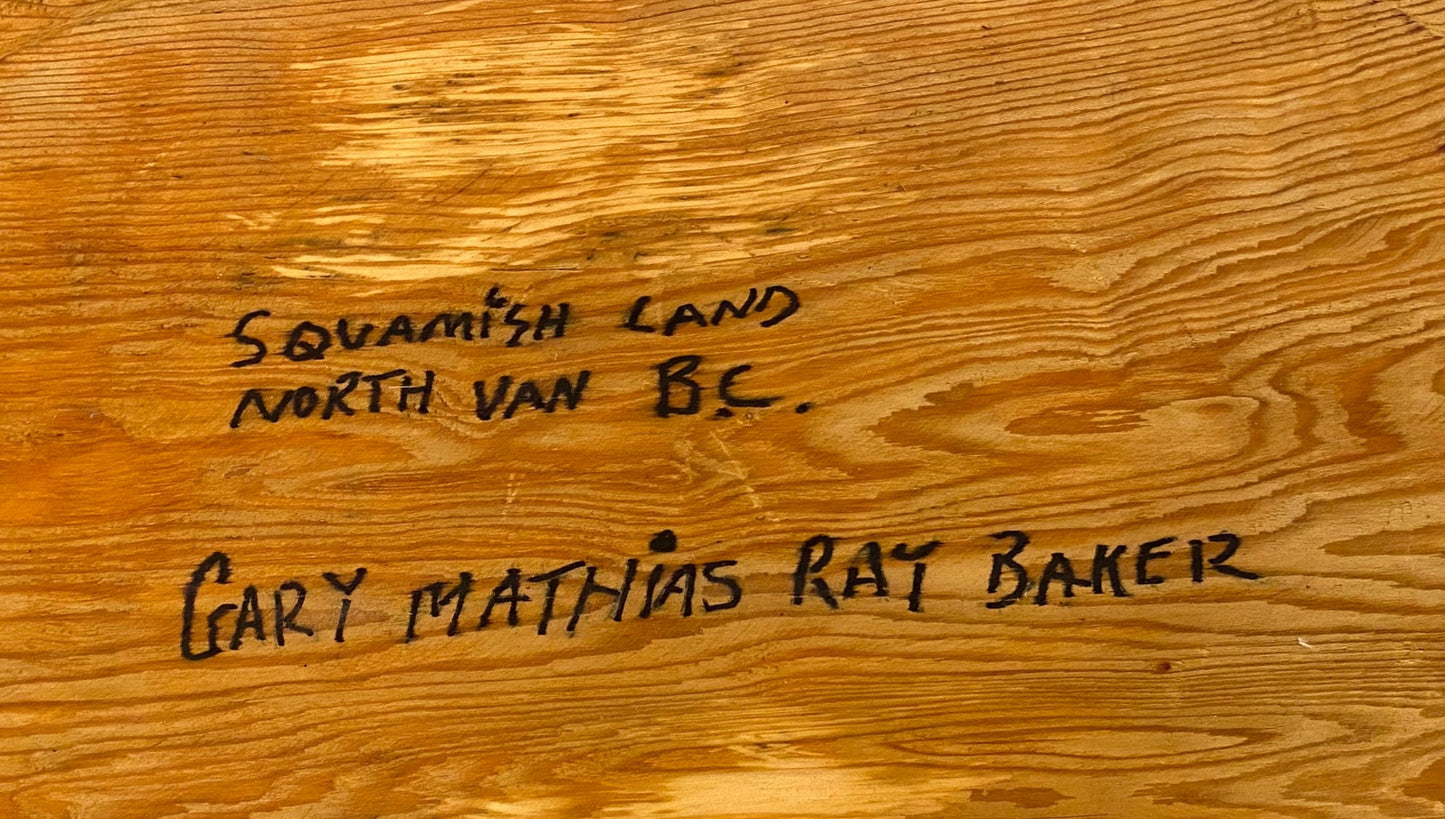 SQUAMiSH LAND
NORTH VAN B.C.
GARY MATHiAS RAY BAKER